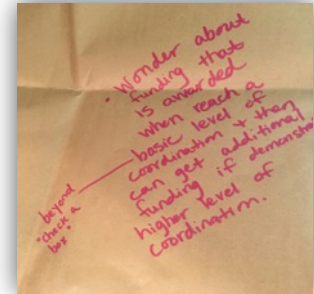 • Wonder about
funding that
is awarded
when reach a
basic level of
coordination + than
can get additional
funding if demonstrat
higher level of
coordination.
beyond
"check a
box"